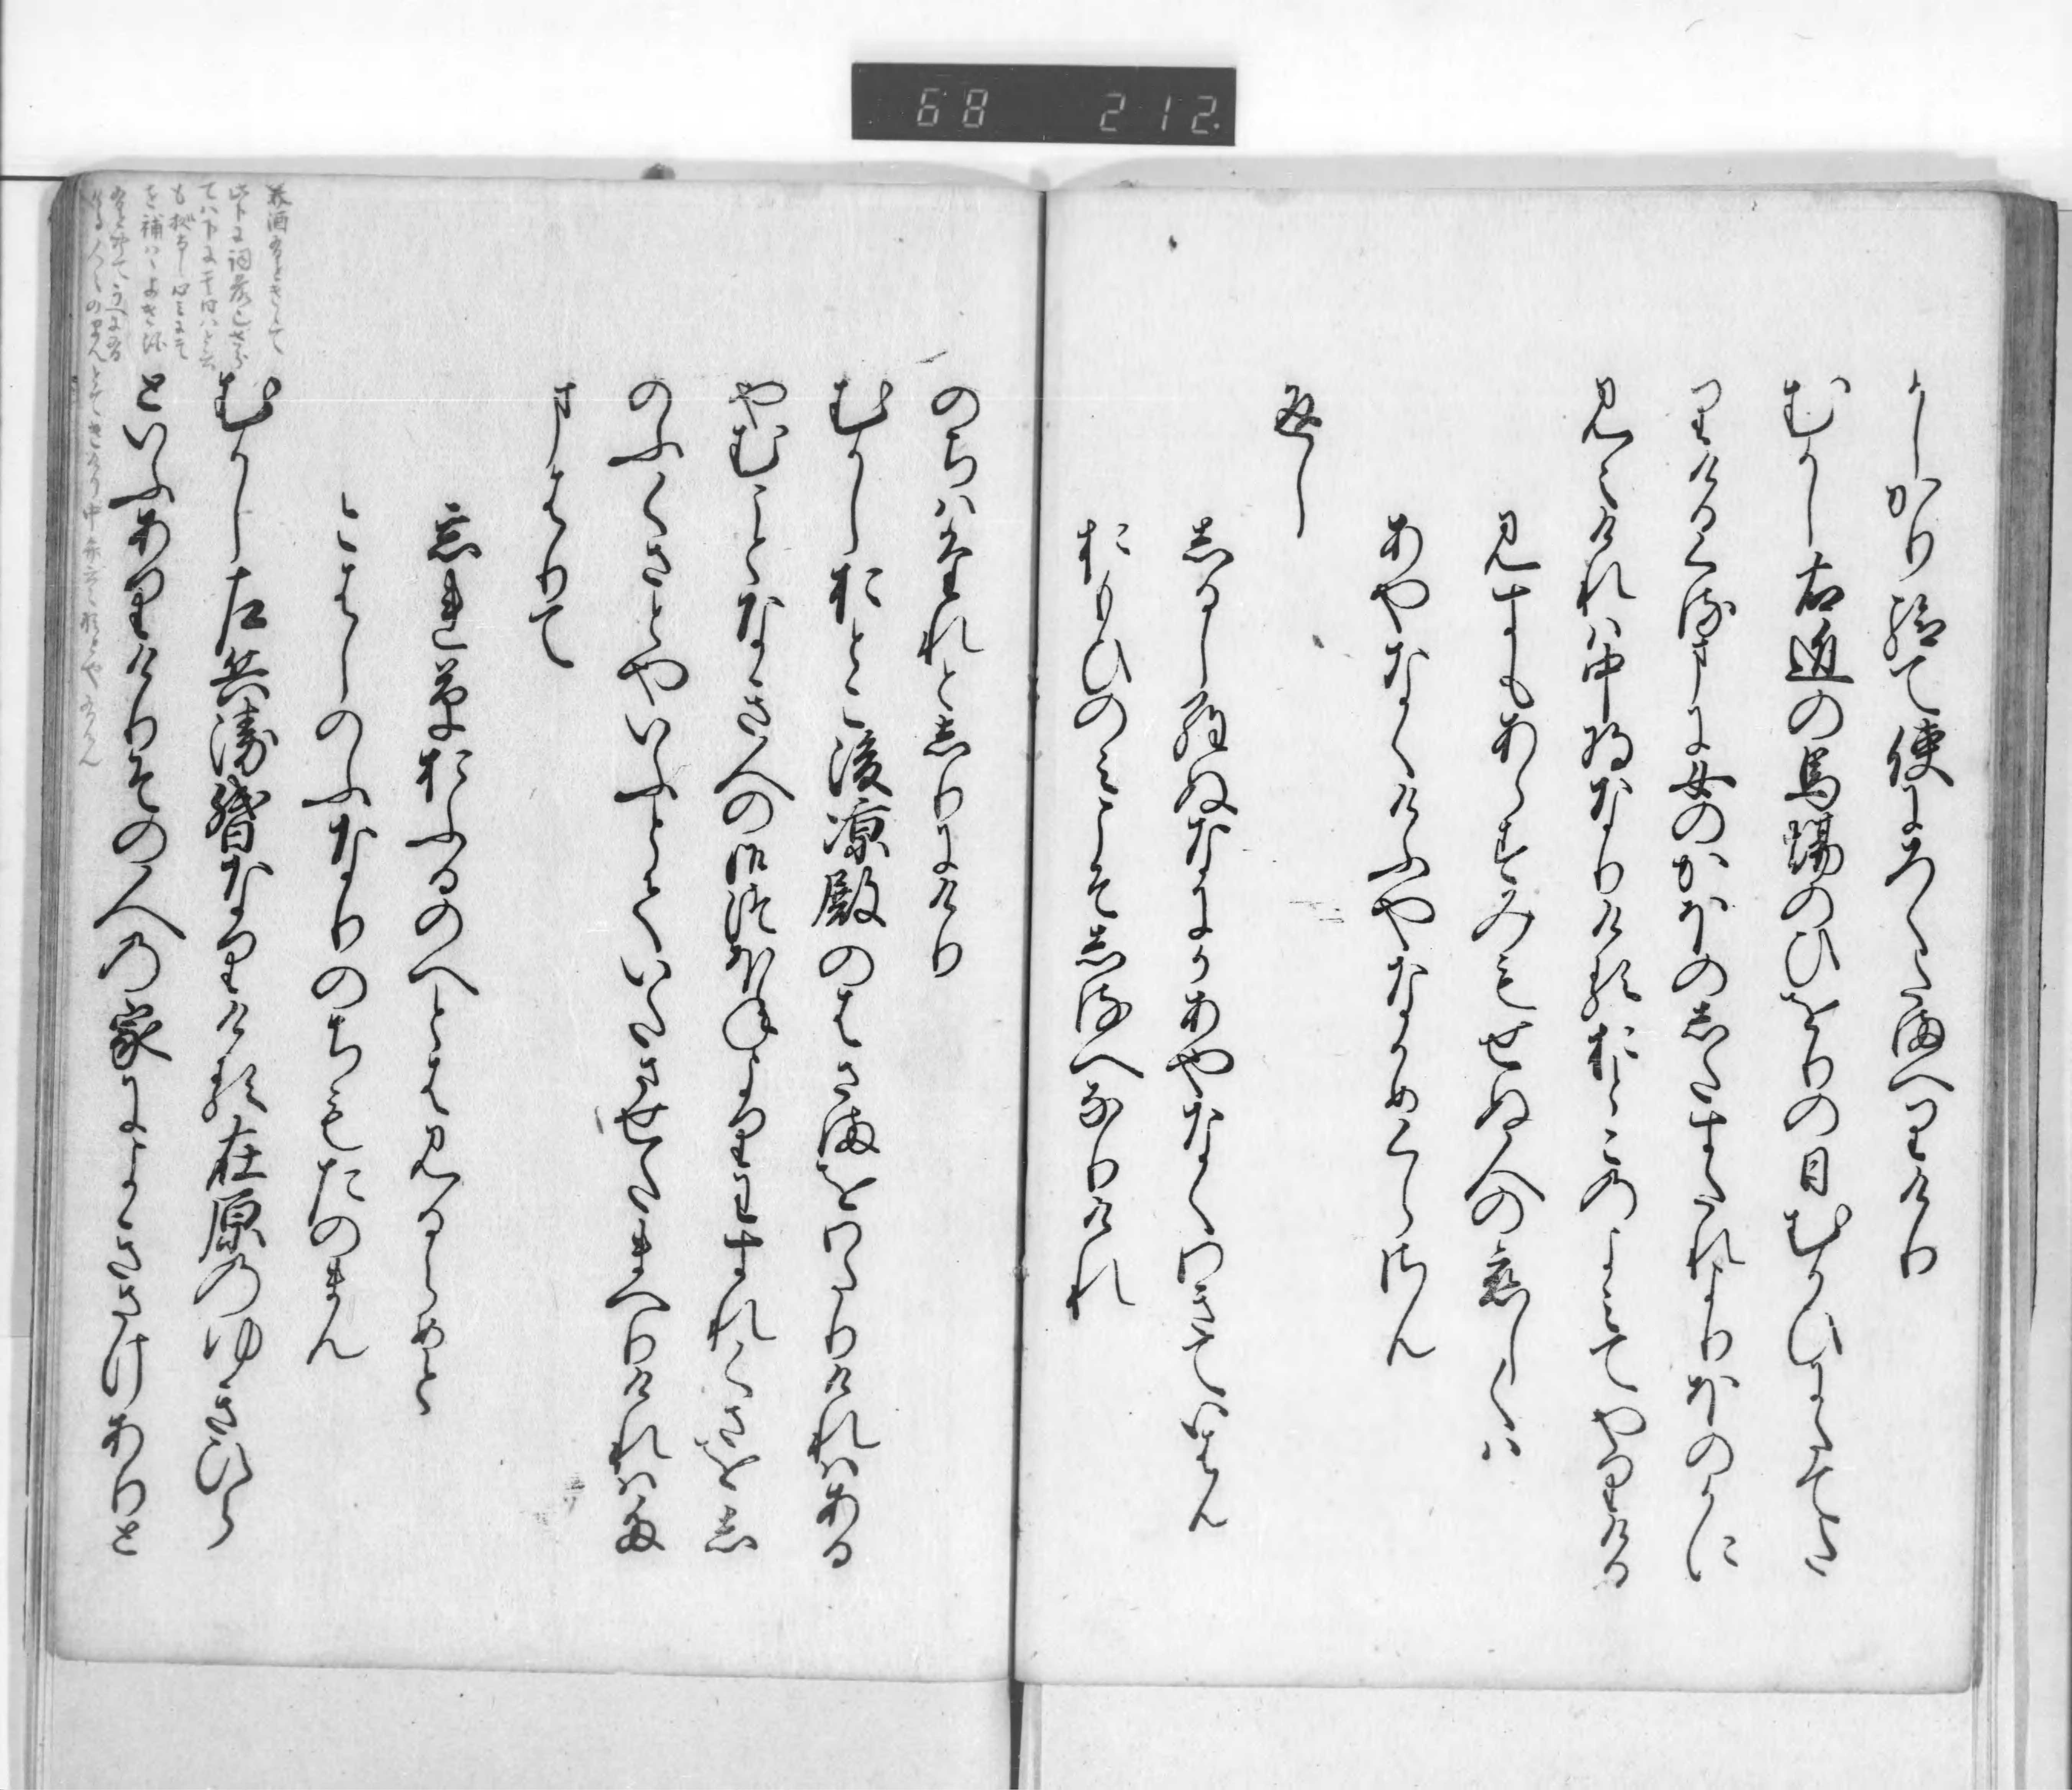 68 212.
かしかり給て使にろくたまへりけり
むかし右近の馬場のひをりの日むかひにたてた
りけるくるまに女のかほのしたすたれよりほのかに
見えけれは中将なりける於とこのよみてやりける
見すもあらすみもせぬ人の恋しくは
あやなくけふやなかめくらさん
返し
しるしらぬなにかあやなくわきていはん
おもひのみこそしるへなりけれ
のちはたれとしりにけり
むかしおとこ後凉殿のはさまをわたりけれはある
やむことなき人の御つほねよりわすれくさをし
のふくさとやいふとていたさせたまへりけれはた
まはりて
忘れ草おふるのへとは見るらめと
こはしのふなりのちもたのまん
むかし左兵衛督なりける在原のゆきひら
といふありけりその人の家によきさけありと